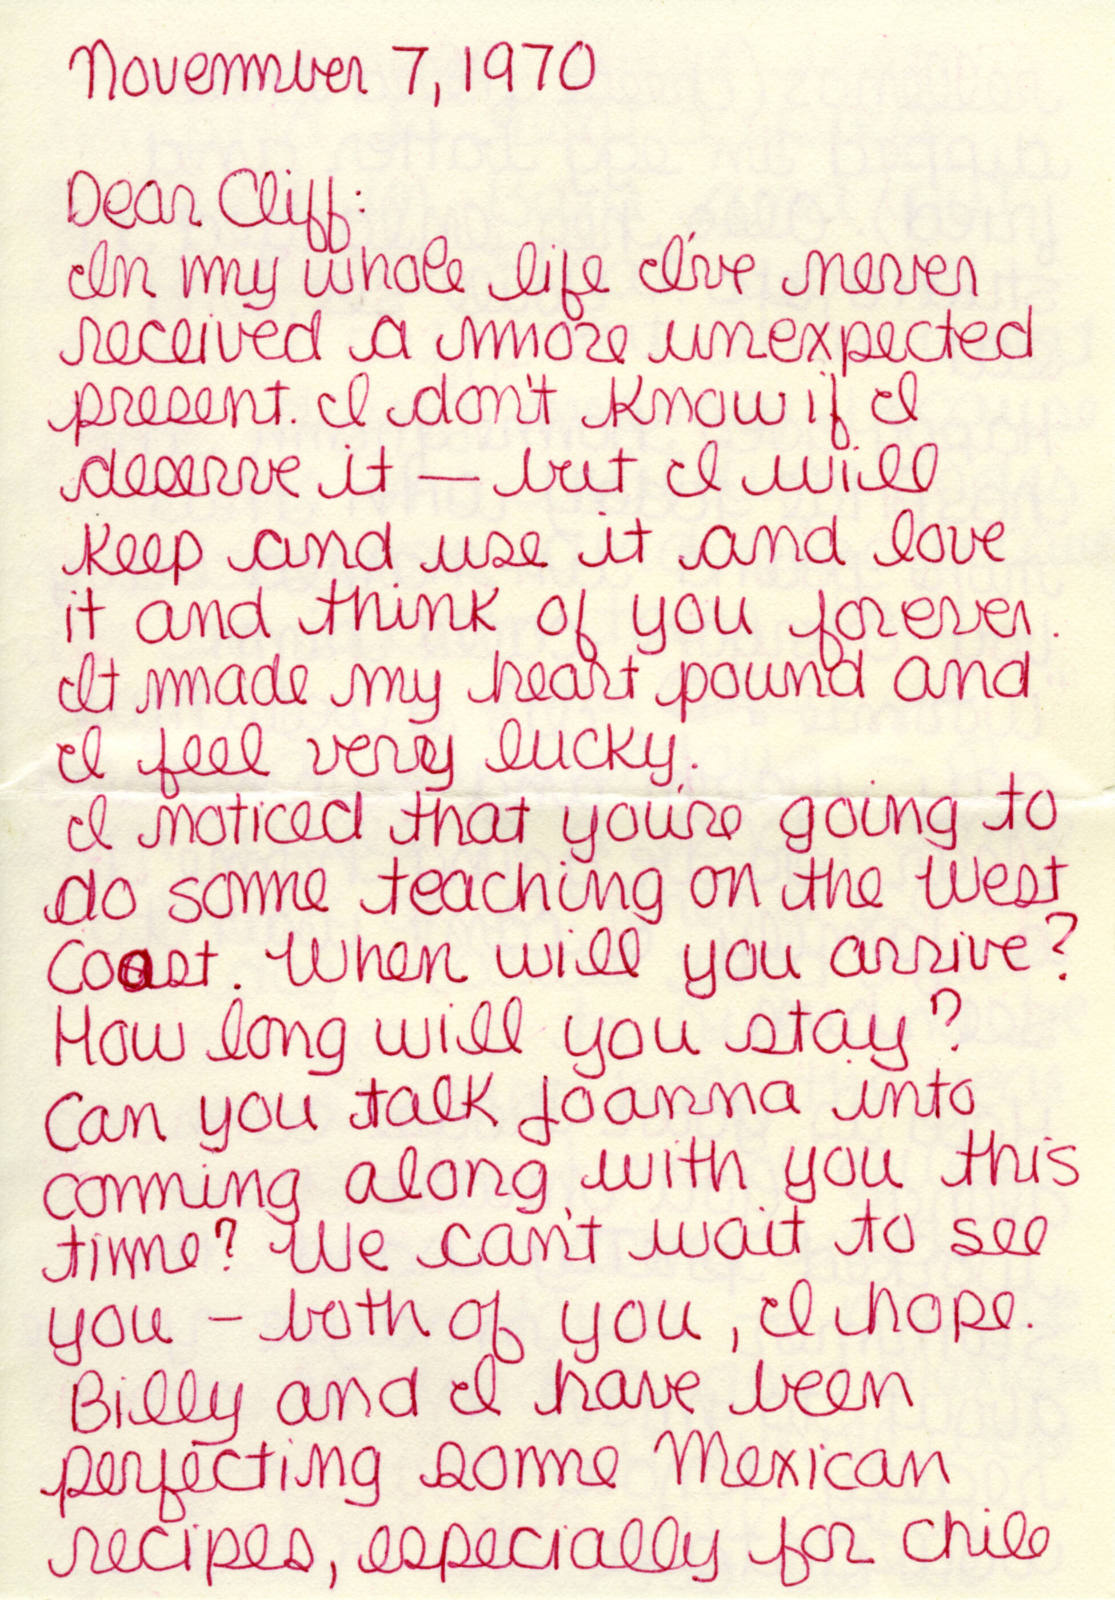 November 7, 1970
Dear Cliff:
In my whole life I've never
received a more unexpected
present. I don't know if I
deserve it — but I will
keep and use it and love
it and think of you forever.
It made my heart pound and
I feel very lucky.
I noticed that you're going to
do some teaching on the West
Coast. When will you arrive?
How long will you stay?
Can you talk Joanna into
coming along with you this
time? We can't wait to see
you — both of you, I hope.
Billy and I have been
perfecting some Mexican
recipes, especially for chile